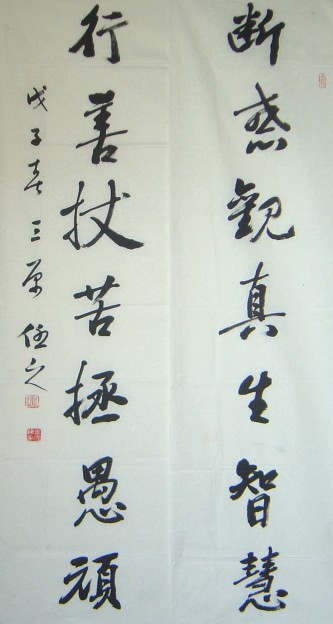 断惑觀真生智慧
行善拔苦拯愚頑
戊子春三原